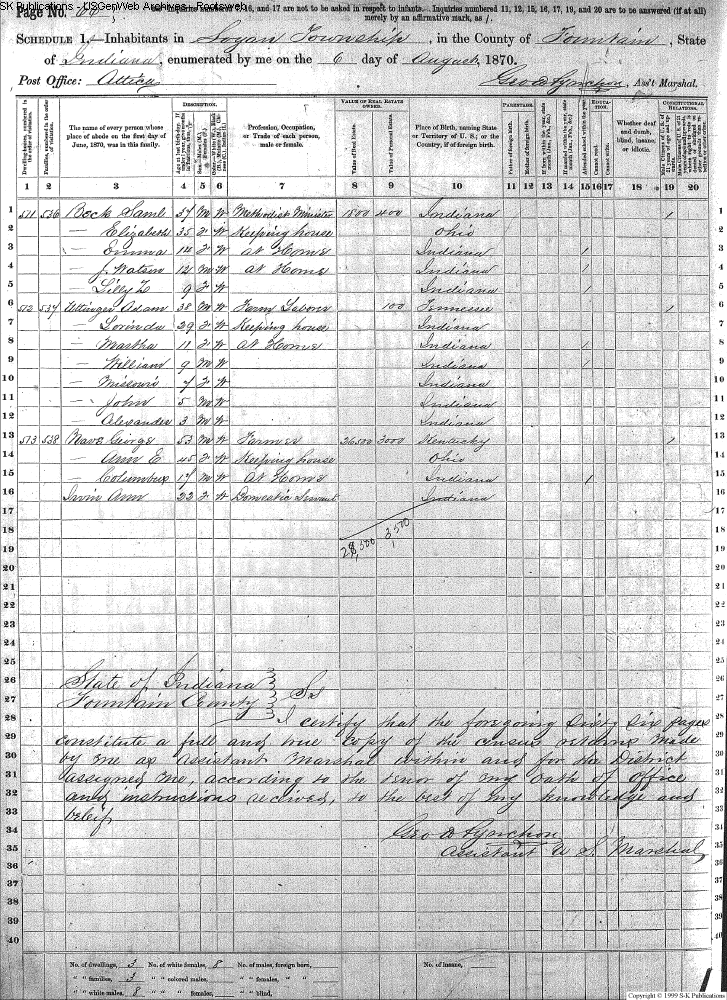 SK Publications - USGenWeb Archives - Rootsweb
Page No. 66
Inquiries numbered 7, 16, and 17 are not to be asked in respect to infants. Inquiries numbered 11, 12, 15, 16, 17, 19, and 20 are to be answered (if at all)
merely by an affirmative mark, as /.
SCHEDULE 1.—Inhabitants in Logan Township, in the County of Fountain, State
of Indiana, enumerated by me on the 6 day of August, 1870.
Post Office: Attica
Geo D Lynchon, Ass't Marshal.
DESCRIPTION. VALUE OF REAL ESTATE OWNED. PARENTAGE. EDUCATION. CONSTITUTIONAL RELATIONS.
The name of every person whose place of abode on the first day of June, 1870, was in this family.
Profession, Occupation, or Trade of each person, male or female.
Value of Real Estate. Value of Personal Estate.
Place of Birth, naming State or Territory of U. S.; or the Country, if of foreign birth.
Father of foreign birth. Mother of foreign birth.
Attended school within the year. Cannot read. Cannot write.
Whether deaf and dumb, blind, insane, or idiotic.
1 2 3 4 5 6 7 8 9 10 11 12 13 14 15 16 17 18 19 20
1 511 536 Bock Saml 37 M W Methodist Minister 1800 400 Indiana 1 1
2 — Elizabeth 35 F W Keeping house Ohio 2
3 — Emma 14 F W at Home Indiana 1 3
4 — J. Watson 12 M W at Home Indiana 1 4
5 — Lilly L 9 F W Indiana 1 5
6 512 537 Uttinger Adam 38 M W Farm Labour 100 Tennessee 1 6
7 — Lorinda 29 F W Keeping house Indiana 7
8 — Martha 11 F W at Home Indiana 1 8
9 — William 9 M W Indiana 1 9
10 — Missouri 7 F W Indiana 10
11 — John 5 M W Indiana 11
12 Alexander 3 M W Indiana 12
13 513 538 Nave George 53 M W Farmer 26500 3000 Kentucky 1 13
14 — Ann E 45 F W Keeping house Ohio 14
15 — Columbus 17 M W at Home Indiana 1 15
16 Irvin Ann 22 F W Domestic Servant Indiana 16
17 17
18 28,300 3,500 18
19 19
20 20
21 21
22 22
23 23
24 24
25 25
26 State of Indiana 26
27 Fountain County Ss 27
28 I certify that the foregoing Sixty Six pages 28
29 constitute a full and true copy of the census returns made 29
30 by me as Assistant Marshal within and for the District 30
31 assigned me, according to the tenor of my oath of office 31
32 and instructions received, to the best of my knowledge and 32
33 belief 33
34 Geo D Lynchon 34
35 Assistant U S. Marshal 35
36 36
37 37
38 38
39 39
40 40
No. of dwellings, 3 No. of white females, 8 No. of males, foreign born, No. of insane,
" " families, 3 " " colored males, " " females, " "
" " white males, 8 " " " females, " " blind,
Copyright © 1999 S-K Publications